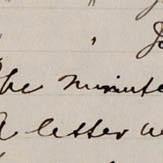 The minute
A letter